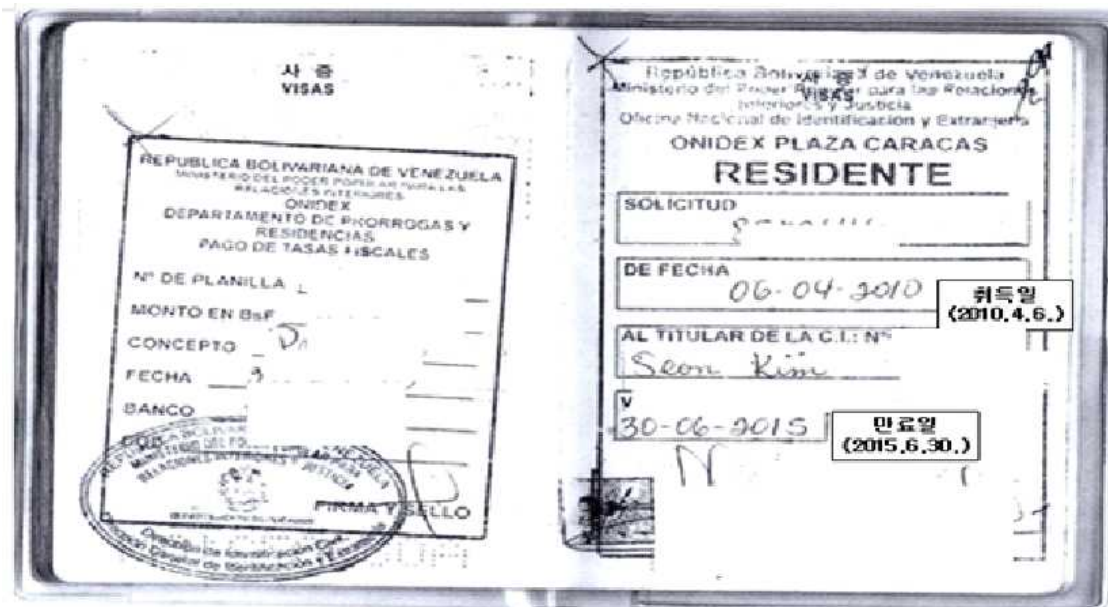 사 증
VISAS
REPUBLICA BOLIVARIANA DE VENEZUELA
MINISTERIO DEL PODER POPULAR PARA LAS
RELACIONES INTERIORES
ONIDEX
DEPARTAMENTO DE PRORROGAS Y
RESIDENCIAS
PAGO DE TASAS FISCALES
Nº DE PLANILLA
MONTO EN BsF
CONCEPTO
FECHA
BANCO
RELACIONES INTERIORES Y JUSTICIA
FIRMA Y SELLO
República Bolivariana de Venezuela
사 증
VISAS
Ministerio del Poder Popular para las Relaciones
Interiores y Justicia
Oficina Nacional de Identificación y Extranjería
ONIDEX PLAZA CARACAS
RESIDENTE
SOLICITUD
DE FECHA
06-04-2010
취득일
(2010.4.6.)
AL TITULAR DE LA C.I.: Nº
Seon Kim
V
30-06-2015
만료일
(2015.6.30.)